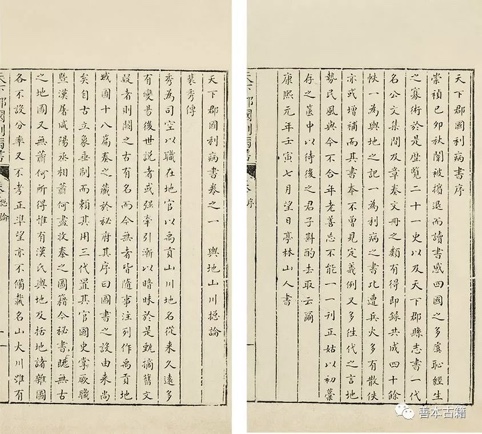 天下郡國利病書序
崇禎己卯秋闈被擯退而讀書感四國之多虞恥經生
之寡術於是歷覽二十一史以及天下郡縣志書一代
名公文集間及章奏文冊之類有得即錄共成四十餘
帙一為輿地之記一為利病之書比遭兵火多有散佚
亦或增補而其書本不曾先定義例又多往代之言地
勢民風與今不合年老善忘不能一一刊正姑以初藁
存之篋中以待後之君子斟酌去取云爾
康熙元年壬寅七月望日亭林山人書
天下郡國利病書
序
天下郡國利病書卷之一 輿地山川總論
裴秀傳
秀為司空以職在地官以禹貢山川地名從來久遠多
有變易後世說者或强牽引漸以暗昧於是甄擿舊文
疑者則闕之古有名而今無者皆隨事注列作禹貢地
域圖十八篇奏之藏於秘府其序曰圖書之設由來尚
矣自古立象垂制而賴其用三代置其官國史掌厥職
曁漢屠咸陽丞相蕭何盡收秦之圖籍今秘書既無古
之地圖又無蕭何所得惟有漢氏輿地及括地諸雜圖
各不設分率又不考正準望亦不備載名山大川雖有
天下郡國利病書
總論
善本古籍